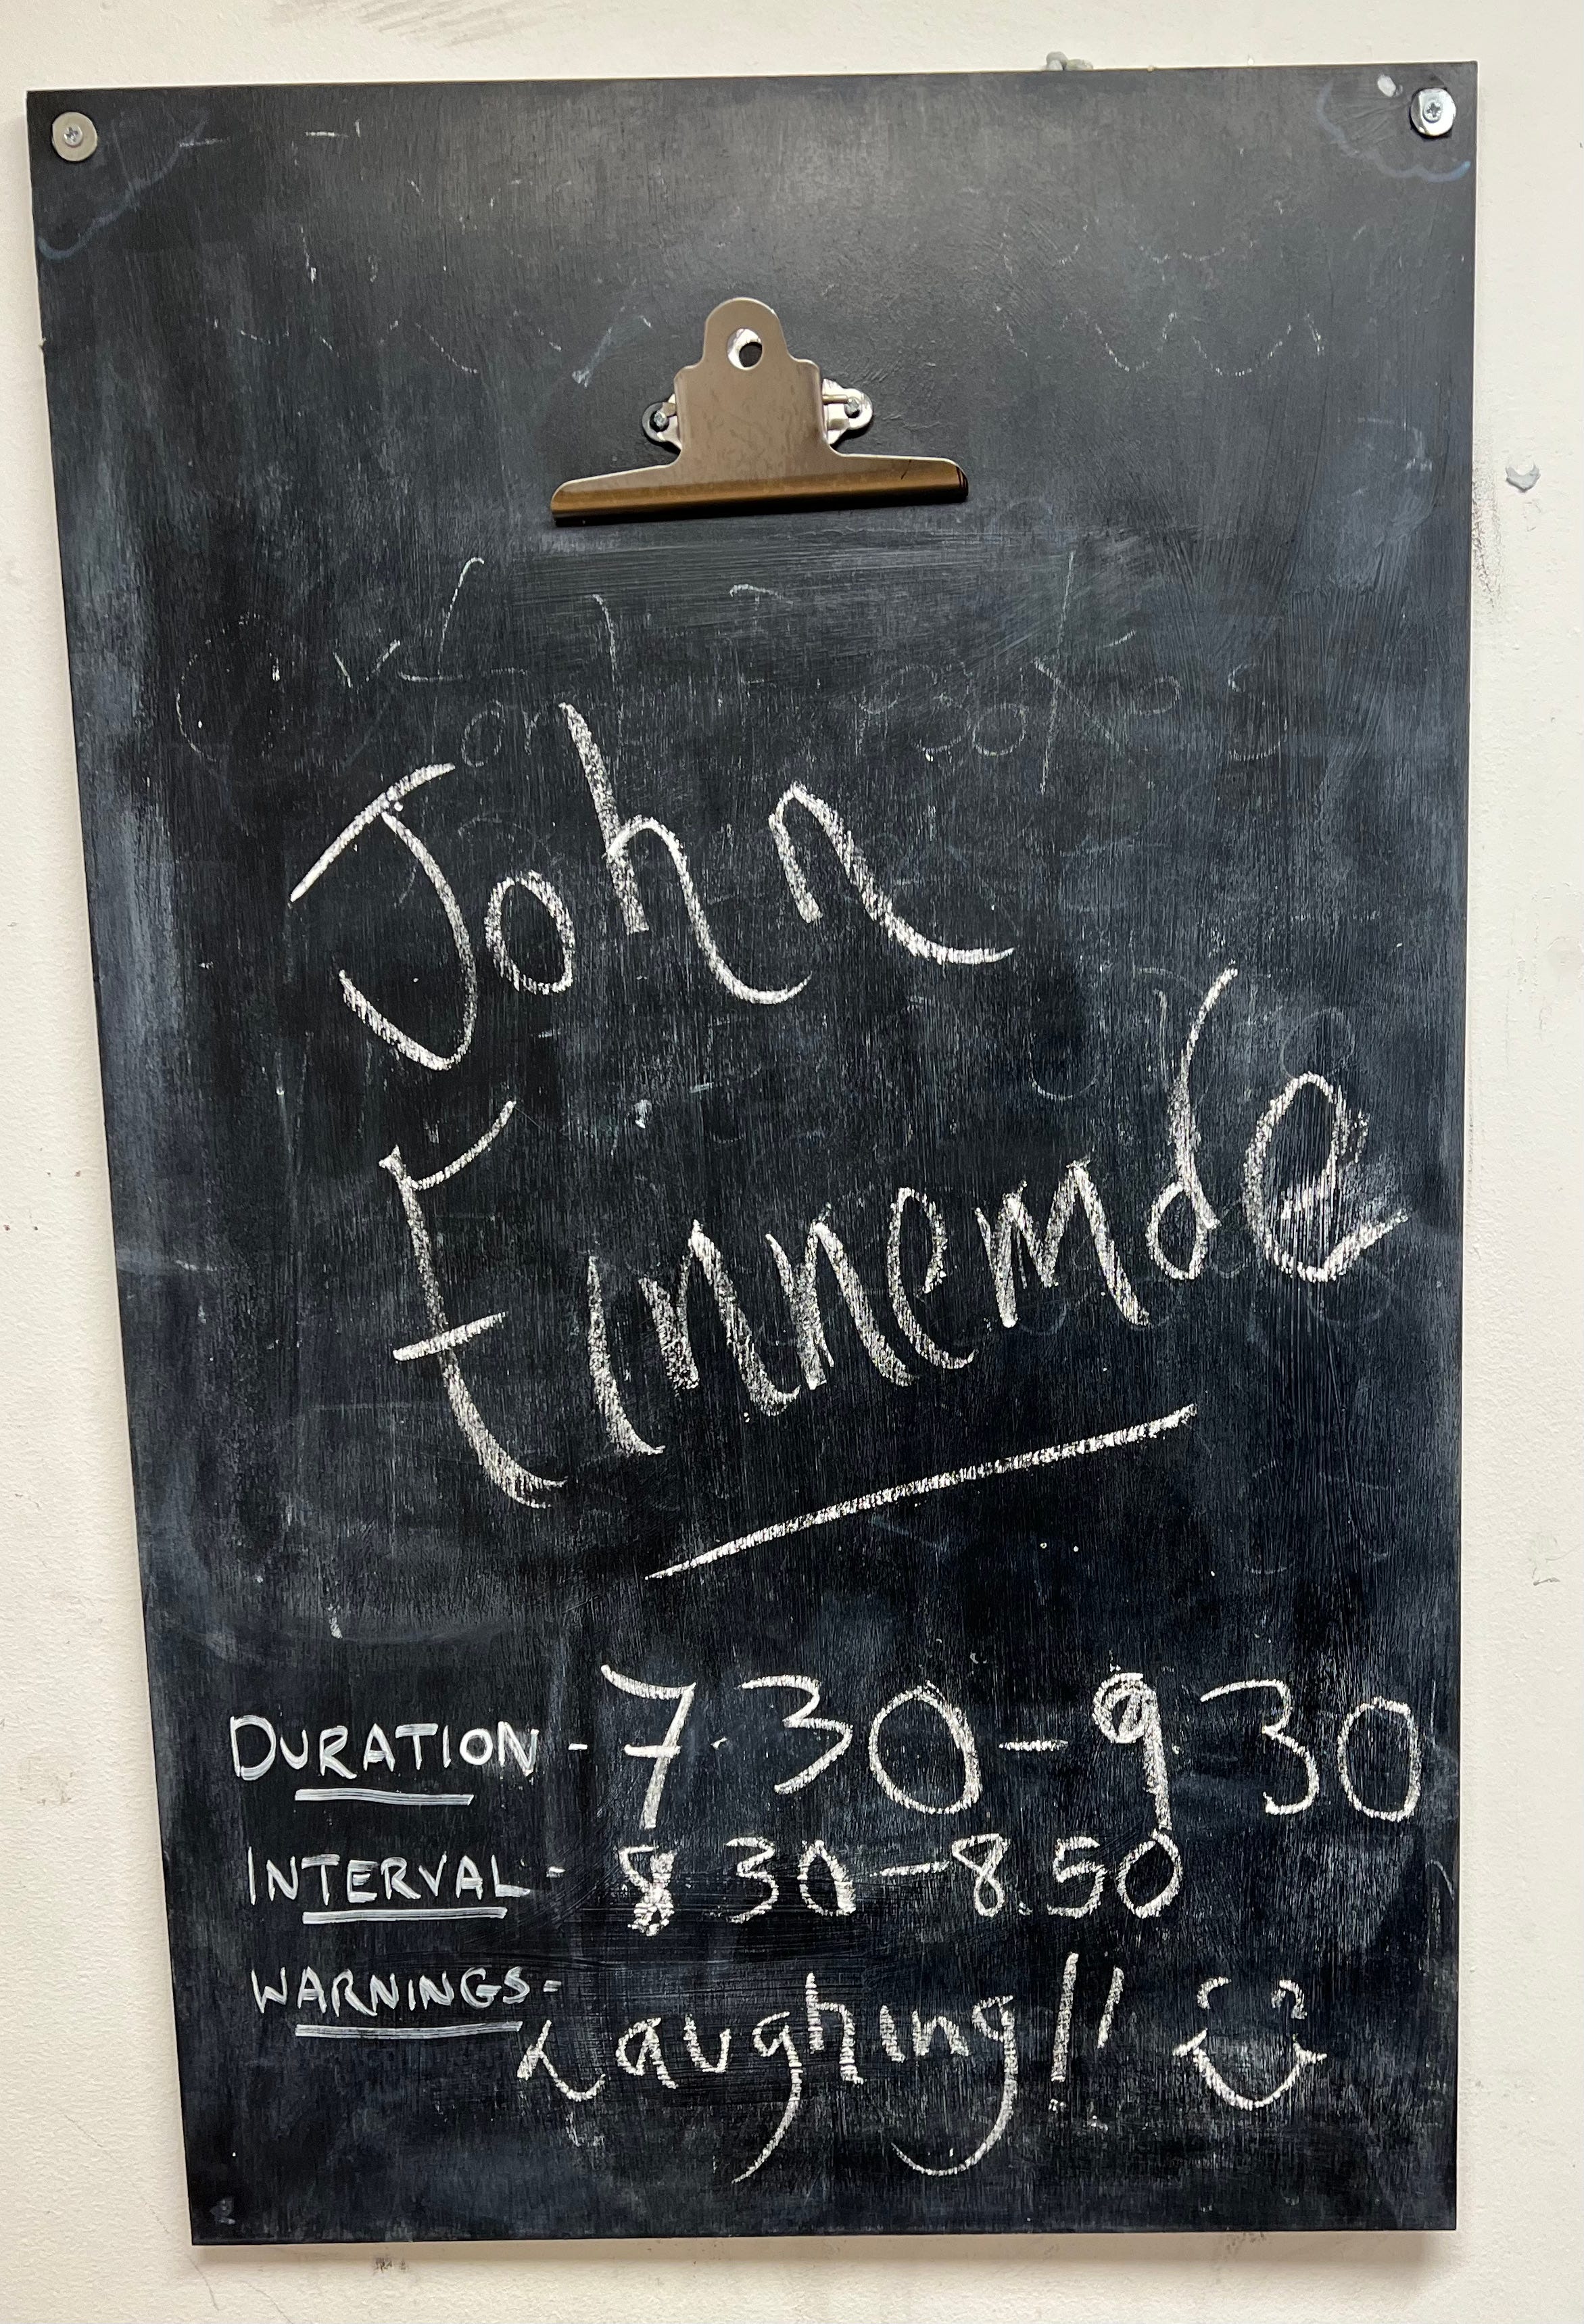 John
Finnemde
DURATION - 7.30 - 9.30
INTERVAL - 8 30 - 8.50
WARNINGS -
Laughing!!